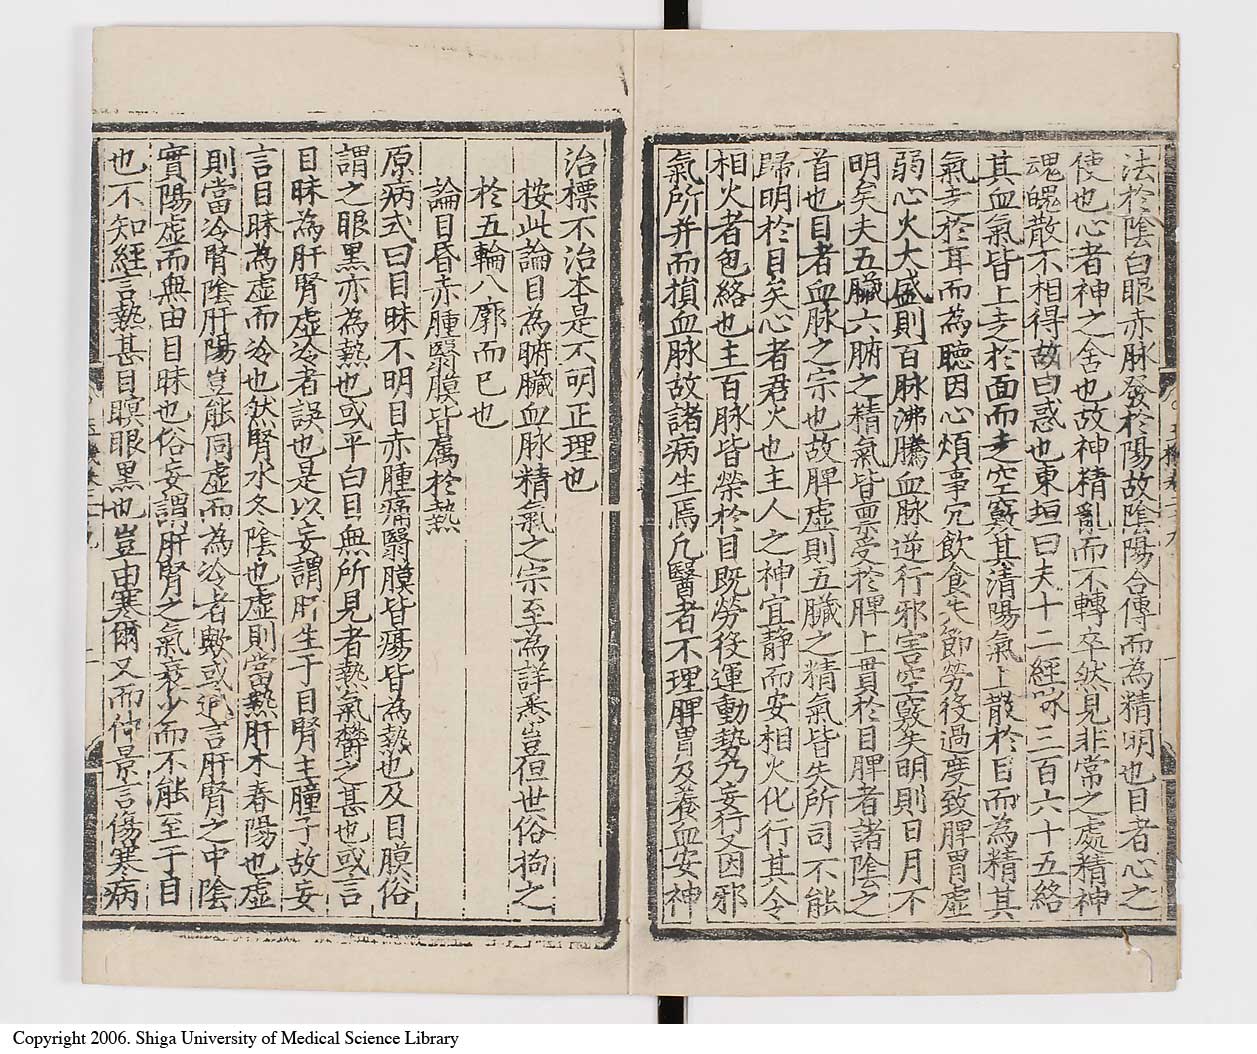 法於陰白眼赤脉發於陽故陰陽合傳而為精明也目者心之
使也心者神之舍也故神精亂而不轉卒然見非常之處精神
魂魄散不相得故曰惑也東垣曰夫十二經脉三百六十五絡
其血氣皆上走於面而走空竅其清陽氣上散於目而為精其
氣走於耳而為聽因心煩事冗飲食失節勞役過度致脾胃虛
弱心火大盛則百脉沸騰血脉逆行邪害空竅矣明則日月不
明矣夫五臟六腑之精氣皆禀受於脾上貫於目脾者諸陰之
首也目者血脉之宗也故脾虛則五臟之精氣皆失所司不能
歸明於目矣心者君火也主人之神宜静而安相火化行其令
相火者包絡也主百脉皆榮於目既勞役運動勢乃妄行又因邪
氣所并而損血脉故諸病生焉凡醫者不理脾胃及養血安神
治標不治本是不明正理也
桉此論目為腑臟血脉精氣之宗至為詳悉豈但世俗拘之
於五輪八廓而已也
論目昏赤腫翳膜皆属於熱
原病式曰目眛不明目赤腫痛翳膜皆瘍皆為熱也及目膜俗
謂之眼黑亦為熱也或平白目無所見者熱氣欝之甚也或言
目眛為肝腎虛冷者誤也是以妄謂肝生于目腎主瞳子故妄
言目眛為虛而冷也然腎水冬陰也虛則當熱肝木春陽也虛
則當冷腎陰肝陽豈能同虛而為冷者歟或通言肝腎之中陰
實陽虛而無由目眛也俗妄謂肝腎之氣衰少而不能至于目
也不知經言熱甚目瞑眼黑也豈由寒爾又而仲景言傷寒病
Copyright 2006. Shiga University of Medical Science Library